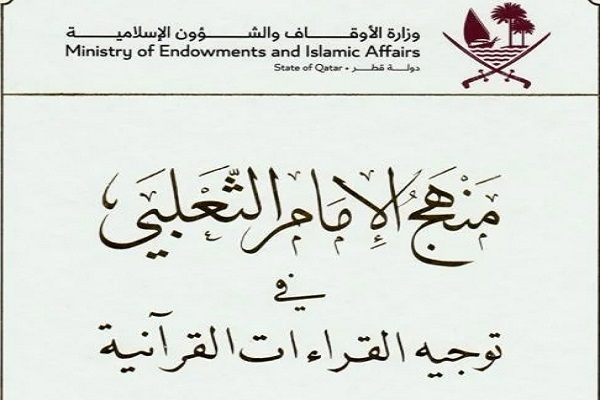 وزارة الأوقاف والشؤون الإسلامية
Ministry of Endowments and Islamic Affairs
State of Qatar • دولة قطر
مَنْهَجُ الإِمَامِ الثَّعْلَبِي
في
توجيه القراءات القرآنية